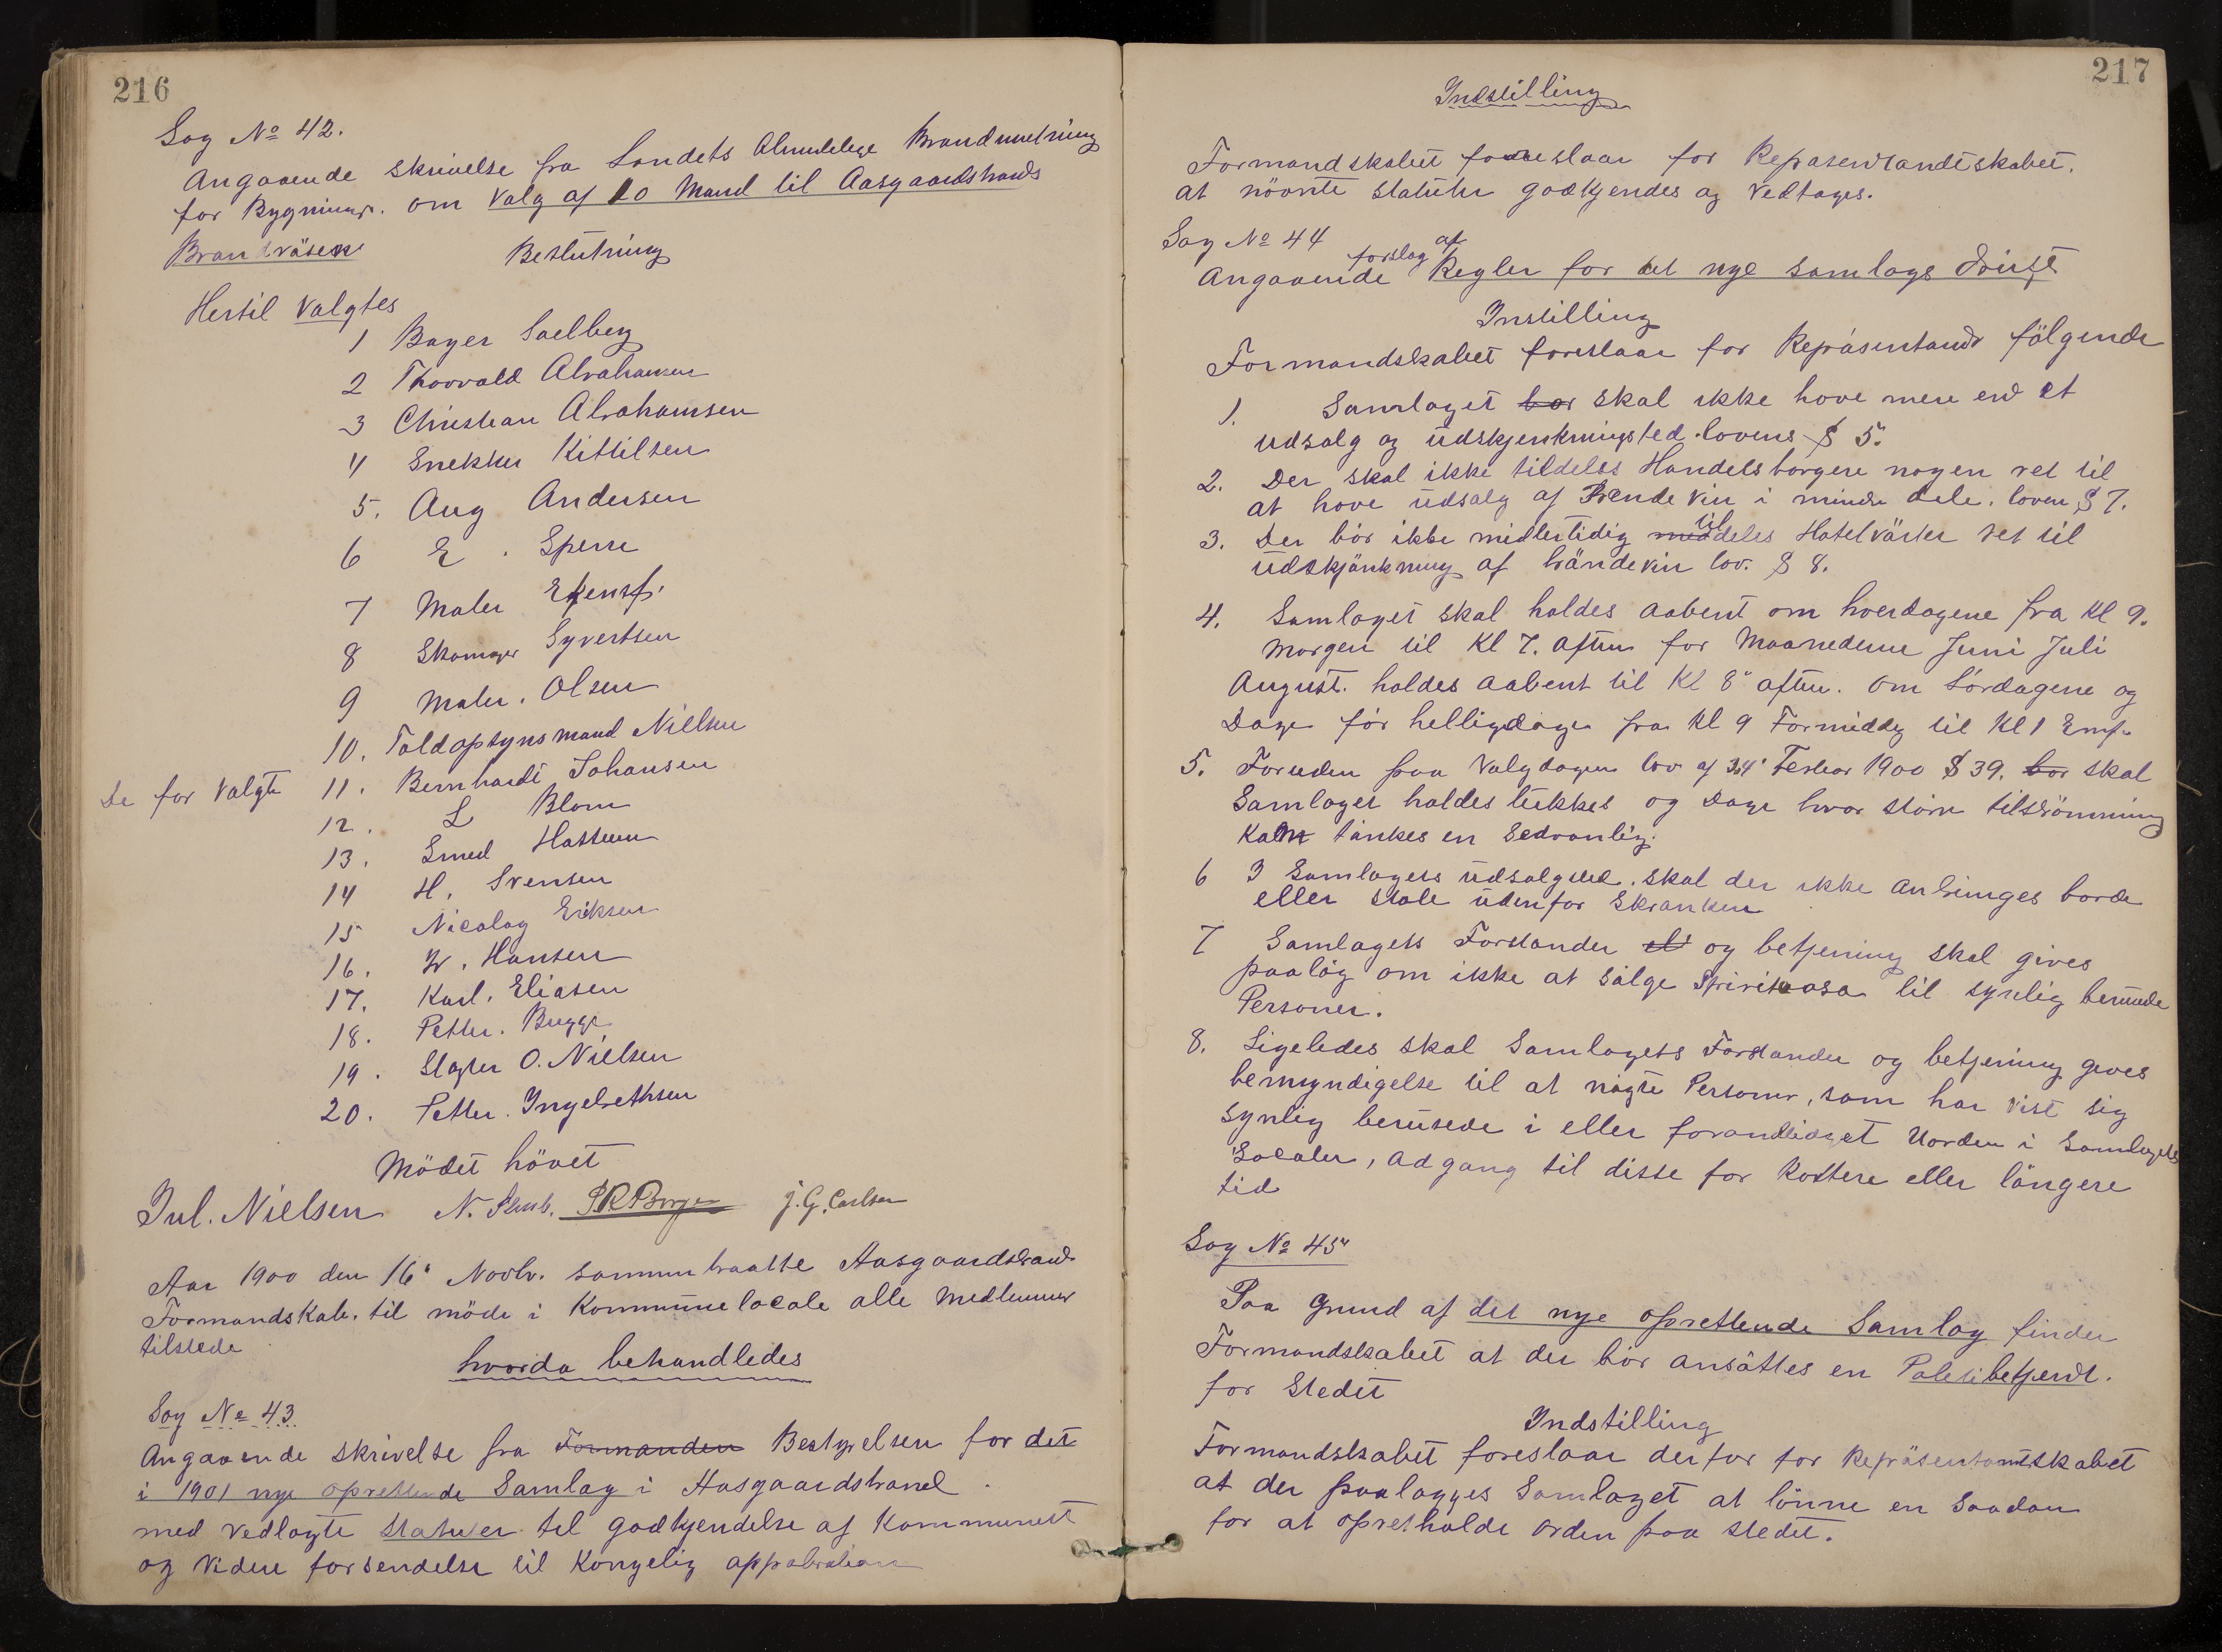 216
Sag No 42.
Angaaende skrivelse fra Landets Almindelige Brandmetning
for Bygninger. om Valg af 10 Mand til Aasgaardstrands
Brandväsen
Beslutning
Hertil Valgtes
1 Bager Solberg
2 Thorvald Abrahamsen
3 Christian Abrahamsen
4 Snekker Kittilsen
5. Aug Andersen
6 E. Sperre
7 Maler
8 Skomager Syvertsen
9 Maler. Olsen
10. Toldopsynsmand Nielsen
De før Valgte 11. Bernhardt Johansen
12. L Blom
13. Smed
14 H. Svensen
15 Nicolay Eriksen
16. W. Hansen
17. Karl. Eliasen
18. Petter. Bugge
19. Slagter O. Nielsen
20. Petter. Ingebrethsen
Mödet hövet
Jul. Nielsen N. J. G. Carlsen
Aar 1900 den 16' Novbr. sammentraatte Aasgaardstrand
Formandskab. til möde i Kommunelocale alle Medlemmer
tilstede
hvorda behandledes
Sag No 43
Angaaende skrivelse fra Formanden Bestyrelsen for det
i 1901 nye oprettende Samlag i Aasgaardstrand.
med vedlagte Statuter til godkjendelse af Kommunest
og Videre forsendelse til Kongelig approbation
217
Indstilling
Formandskabet foreslaar for Repäsentantskabet.
at növnte statuter godkjendes og Vedtages.
Sag No 44
Angaaende forslag af Regler for det nye samlags drift
Instilling
Formandskabet foreslaar for Repäsentand fölgende
1. Samlaget bør skal ikke have mere end et
udsalg og udskjenkningsted. lovens § 5.
2. Der skal ikke tildeles Handelsborgere nogen ret til
at have udsalg af Brendevin i mindre dele. loven § 7.
3. Der bör ikke midlertidig meddeles til Hotelvärter ret til
udskjänkning af brändevin lov. § 8.
4. Samlaget skal holdes aabent om hverdagene fra Kl 9.
Morgen til Kl 7. aften for Maanederne Juni Juli
August. holdes aabent til Kl 8" aften. om Lördagene og
Dage för helligdage fra Kl 9 Formiddg til Kl 1 Emf.
5. Foruden paa Valgdagen lov af Februar 1900 § 39. bør skal
Samlaget holdes lukket og Dage hvor större tilströmning
Kan tänkes en Sedvanlig.
6 I Samlagets udsalgsted. skal der ikke anbringes borde
eller stole udenfor Skranken
7 Samlagets Forstander og betjening skal gives
paaläg om ikke at sälge Spirituosa til synlig berusede
Personer.
8. Ligeledes skal Samlagets Forstander og betjening gives
bemyndigelse til at nägte Personer, som har vist sig
synlig berusede i eller forandlediget Uorden i Samlagets
Localer, adgang til disse for Kortere eller längere
tid
Sag No 45"
Paa Grund af det nye oprettende Samlag finder
Formandskabet at der bör ansättes en Politibetjendt.
for Stedet
Indstilling
Formandskabet foreslaar derfor for Repräsentantskabet
at der paalagges Samlaget at lönne en Saadan
for at opretholde Orden paa stedet.